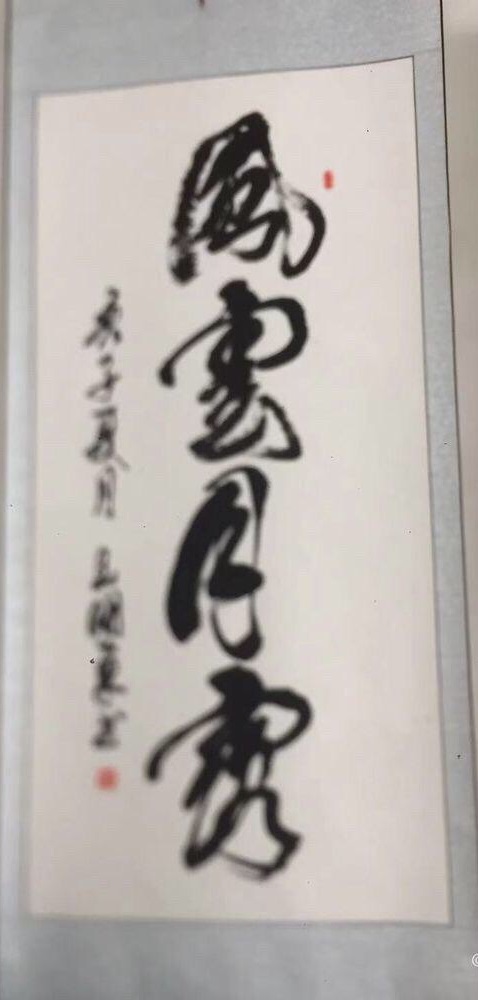 風雲月露
庚子夏月 王國